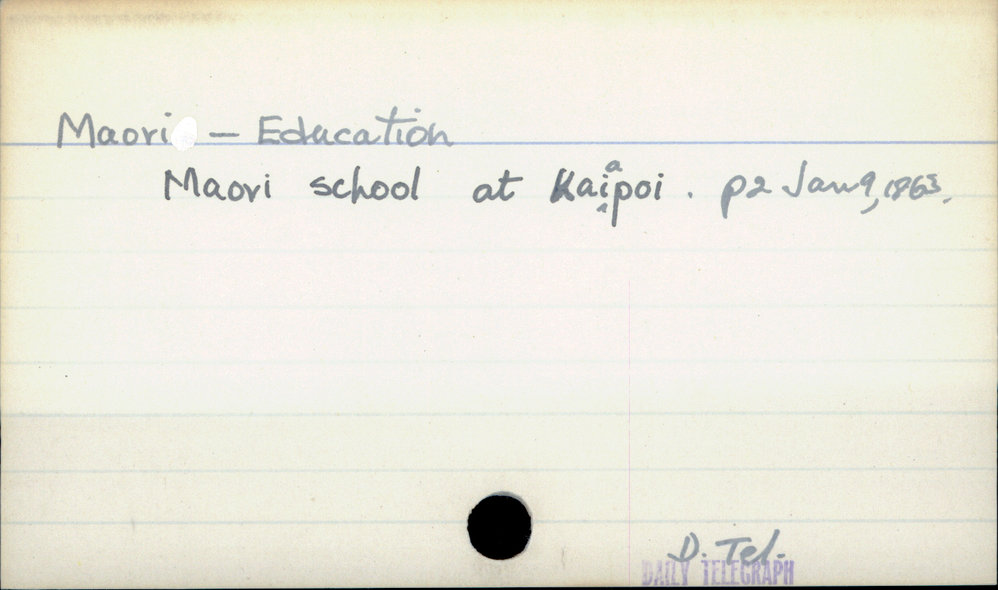 Maori — Education
Maori school at Kaiapoi. p2 Jan 9, 1863.
D. Tel.
DAILY TELEGRAPH